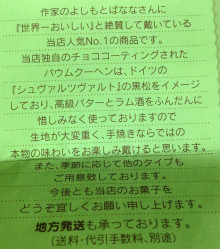 作家のよしもとばななさんに
『世界一おいしい』と絶賛して戴いている
当店人気No.1の商品です。
当店独自のチョココーティングされた
バウムクーヘンは、ドイツの
『シュヴァルツヴァルト』の黒松をイメージ
しており、高級バターとラム酒をふんだんに
惜しみなく使っておりますので
生地が大変重く、手焼きならではの
本物の味わいをお楽しみ戴けると思います。
また、季節に応じて他のタイプも
ご用意致しております。
今後とも当店のお菓子を
どうぞ宜しくお願い申し上げます。
地方発送も承っております。
(送料・代引手数料、別途)